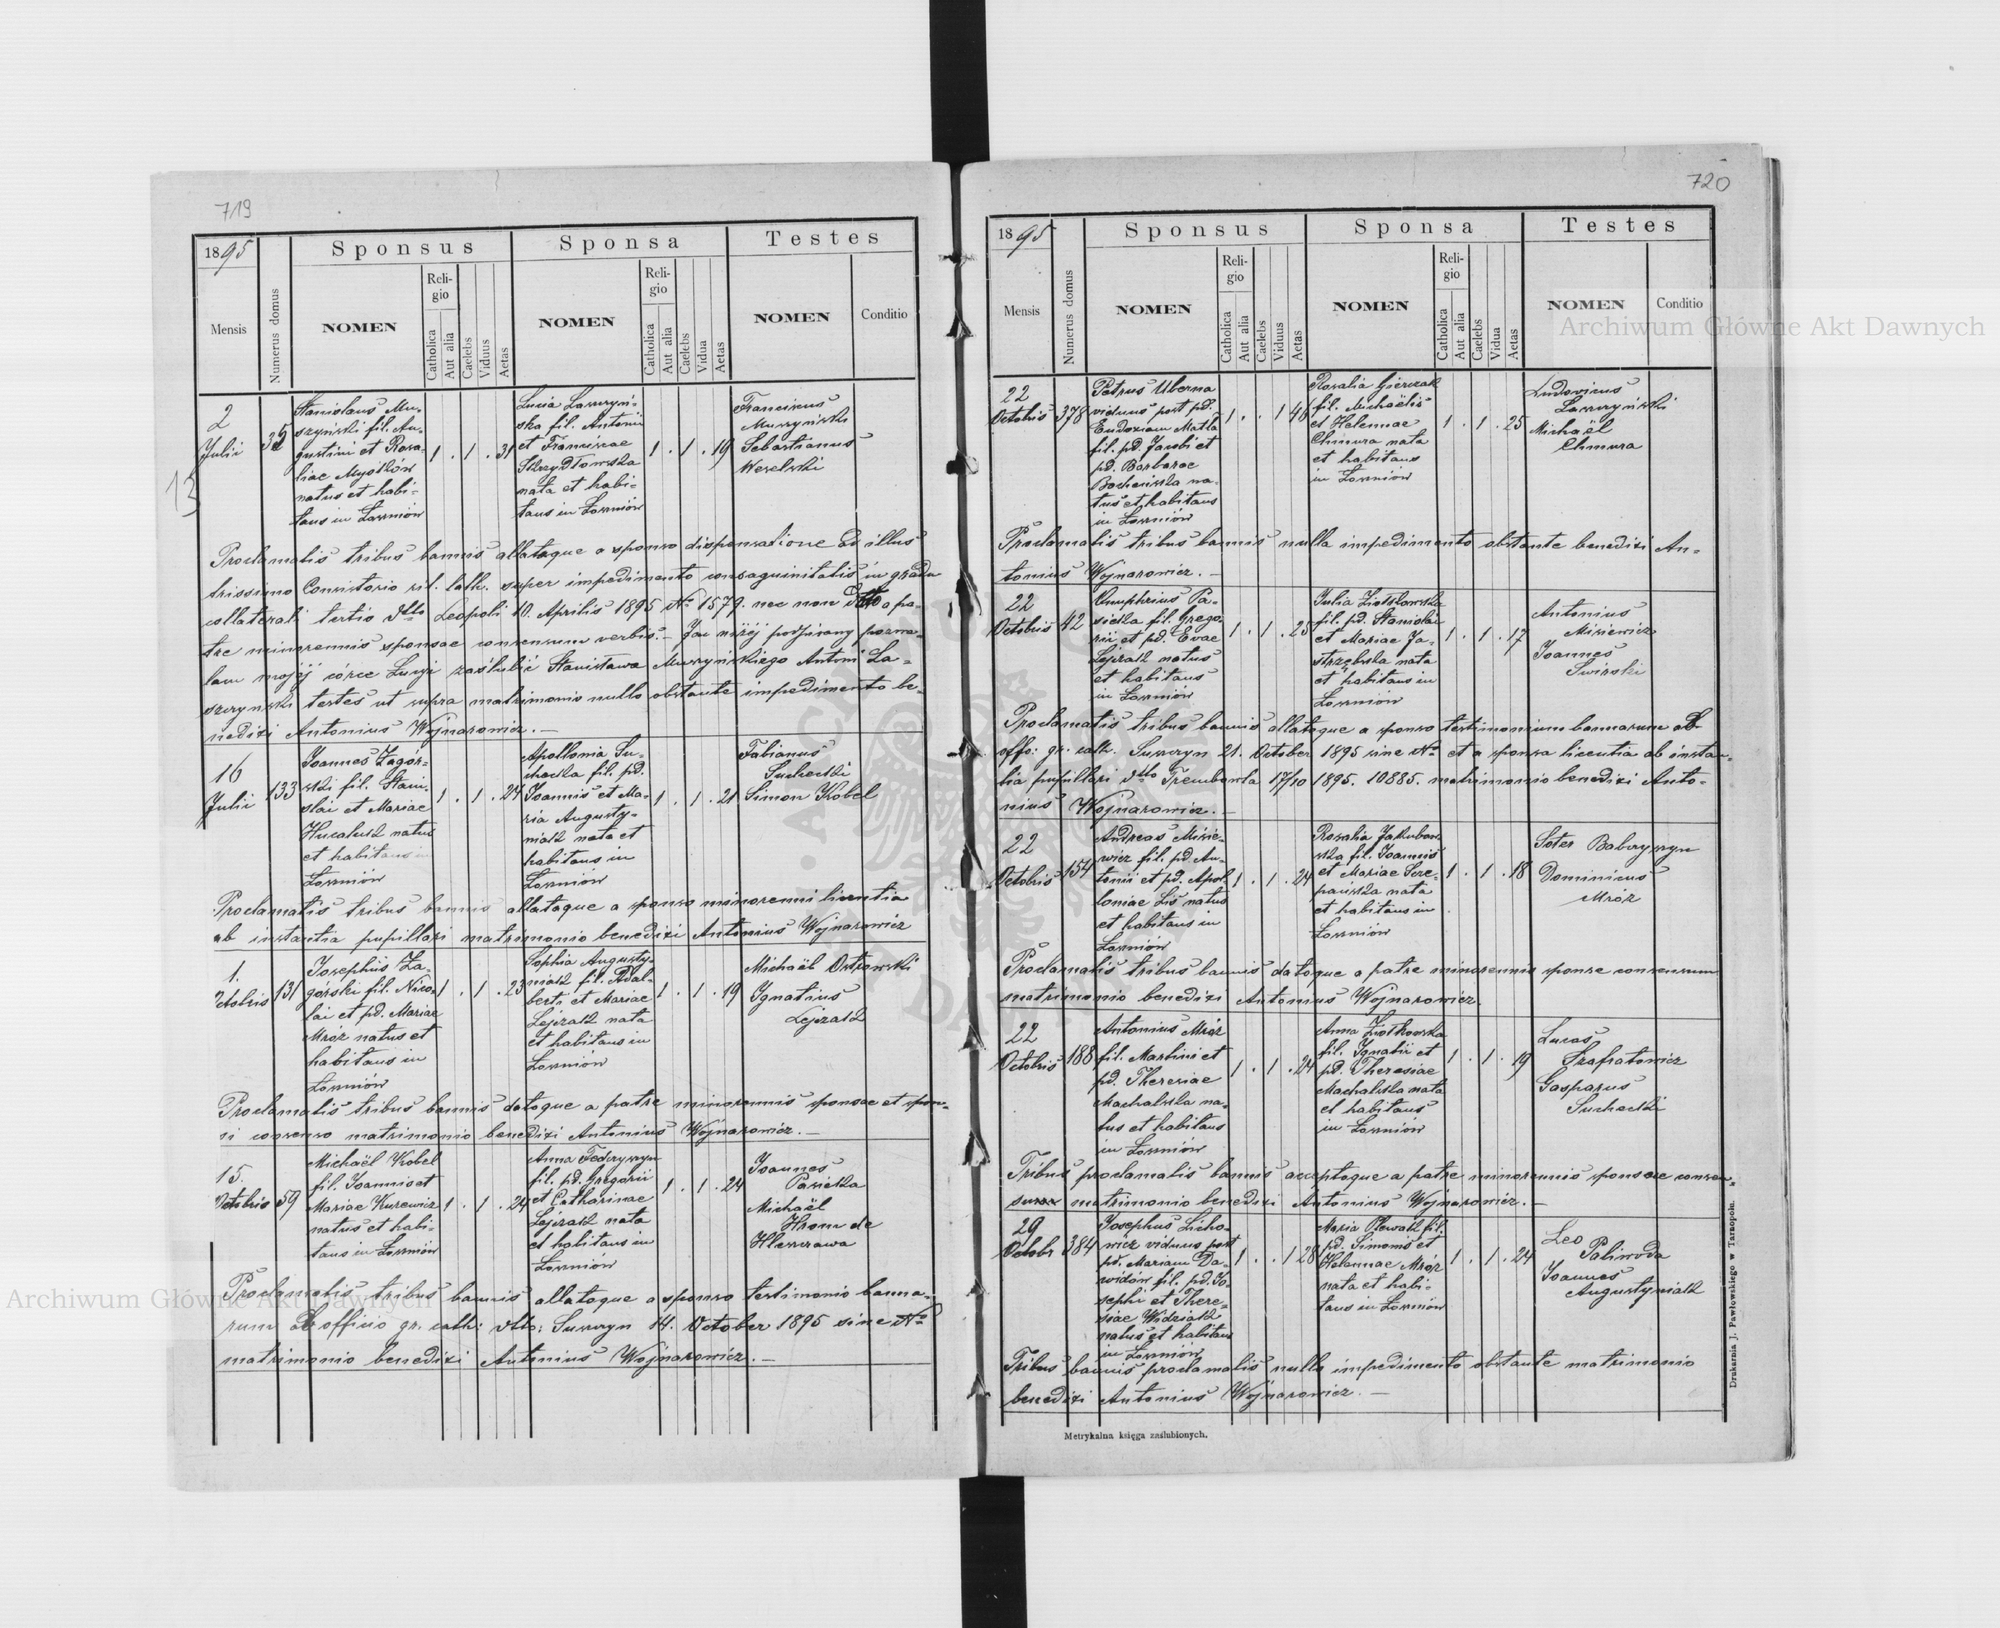 719
1895
Sponsus
Sponsa
Testes
Mensis
Numerus domus
NOMEN
Religio
Catholica
Aut alia
Caelebs
Viduus
Aetas
NOMEN
Religio
Catholica
Aut alia
Caelebs
Vidua
Aetas
NOMEN
Conditio
13
2
Julii
35
Stanislaus Mu-
szyński fil. Au-
gustini et Rosa-
liae Mysków
natus et habi-
tans in Łoszniów
1 . 1 . 31
Lucia Laszczyń-
ska fil. Antonii
et Franciscae
Skrzydłowska
nata et habi-
tans in Łoszniów
1 . 1 . 19
Franciscus
Muszyński
Sebastianus
Weselski
Proclamatis tribus bannis allatoque a sponso dispensatione ab illus
trissimo Consistorio rit. lath. super impedimento consaguinitatis in gradu
collaterali tertio dtto Leopoli 10. Aprilis 1895 No 1579. nec non dtto a pa-
tre minorennis sponsae consensum verbis: – Ja niżéj podpisany pozwa-
lam mojéj córce Łucyi zaślubić Stanisława Muszyńskiego Antoni La-
szczynski testes ut supra matrimonio nullo obstante impedimento be-
nedixi Antonius Wojnarowicz. —
16
Julii
133
Joannes Zagór-
ski fil. Stani-
slai et Mariae
Hucaluk natus
et habitans in
Łoszniów
1 . 1 . 24
Apollonia Su-
checka fil. pd.
Joannis et Ma-
ria Augusty-
niak nata et
habitans in
Łoszniów
1 . 1 . 21
Fabianus
Suchecki
Simon Kobel
Proclamatis tribus bannis allatoque a sponso minorenni licentia
ab instantia pupillari matrimonio benedixi Antonius Wojnarowicz
1.
Octobris
131
Josephus Za-
górski fil. Nico-
lai et pd. Mariae
Mróz natus et
habitans in
Łoszniów
1 . 1 . 23
Sophia Augusty-
niak fil. Adal-
berti et Mariae
Lejzak nata
et habitans in
Łoszniów
1 . 1 . 19
Michaël Ostrowski
Ignatius
Lejzak
Proclamatis tribus bannis datoque a patre minorennis sponsae et spon-
si consenso matrimonio benedixi Antonius Wojnarowicz. —
15.
Octobris
59
Michaël Kobel
fil. Joannis et
Mariae Kurewicz
natus et habi-
tans in Łoszniów
1 . 1 . 24
Anna Fedczyszyn
fil. pd. Gregorii
et Catharinae
Lejzak nata
et habitans in
Łoszniów
1 . 1 . 24
Joannes
Pasieka
Michaël
Hrom de
Hleszczawa
Proclamatis tribus bannis allatoque a sponso testimonio banna-
rum ab officio gr. cath: dtto: Suszczyn 14. October 1895 sine No
matrimonio benedixi Antonius Wojnarowicz. —
720
1895
Sponsus
Sponsa
Testes
Mensis
Numerus domus
NOMEN
Religio
Catholica
Aut alia
Caelebs
Viduus
Aetas
NOMEN
Religio
Catholica
Aut alia
Caelebs
Vidua
Aetas
NOMEN
Conditio
22
Octobris
378
Petrus Uberna
viduus post pd.
Eudoxiam Matła
fil. pd. Jacobi et
pd. Barbarae
natus et habitans
in Łoszniów
1 . . 1 46
Rosalia Gierczak
fil. Michaëlis
et Helennae
Chmura nata
et habitans
in Łoszniów
1 . 1 . 25
Ludovicus
Laszczyński
Michaël
Chmura
Proclamatis tribus bannis nullo impedimento obstante benedixi An-
tonius Wojnarowicz. —
22
Octobris
42
Onuphrius Pa-
sieka fil. Grego-
rii et pd. Evae
Lejzak natus
et habitans
in Łoszniów
1 . 1 . 25
Julia Ziołkowska
fil. pd. Stanislai
et Mariae Ja-
strzębska nata
et habitans in
Łoszniów
1 . 1 . 17
Antonius
Misiewicz
Joannes
Swirski
Proclamatis tribus bannis allatoque a sponso testimonium bannarum ab
offo: gr. cath. Suszczyn 21. October 1895 sine No et a sponsa licentia ab instan-
tia pupillari dtto Trembowla 17/10 1895. 10885. matrimonio benedixi Anto-
nius Wojnarowicz. —
22
Octobris
154
Andreas Misie-
wicz fil. pd. An-
tonii et pd. Apol-
loniae Lis natus
et habitans in
Łoszniów
1 . 1 . 24
Rosalia Jakubow-
ska fil. Joannis
et Mariae Szcze-
pańska nata
et habitans in
Łoszniów
1 . 1 . 18
Soter Babczyszyn
Dominicus
Mróz
Proclamatis tribus bannis datoque a patre minorennis sponse consensum
matrimonio benedixi Antonius Wojnarowicz.
22
Octobris
188
Antonius Mróz
fil. Martini et
pd. Theresiae
Machalska na-
tus et habitans
in Łoszniów
1 . 1 . 24
Anna Ziołkowska
fil. Ignatii et
pd. Theresiae
Machalska nata
et habitans
in Łoszniów
1 . 1 . 19
Lucas
Szafratowicz
Gasparus
Suchecki
Tribus proclamatis bannis acceptoque a patre minorennis sponsae consen-
matrimonio benedixi Antonius Wojnarowicz. —
29
Octobr
384
Josephus Licho-
wicz viduus post
pd. Mariam Da-
widów fil. pd. Jo-
sephi et There-
siae Widziak
natus et habitans
in Łoszniów
1 . . 1 28
Maria Plewak fil.
pd. Simonis et
Helennae Mróz
nata et habi-
tans in Łoszniów
1 . 1 . 24
Leo
Paliwoda
Joannes
Augustyniak
Tribus bannis proclamatis nullo impedimento obstante matrimonio
benedixi Antonius Wojnarowicz. —
Metrykalna księga zaślubionych.
Drukarnia J. Pawłowskiego w Tarnopolu.
Archiwum Główne Akt Dawnych
Archiwum Główne Akt Dawnych